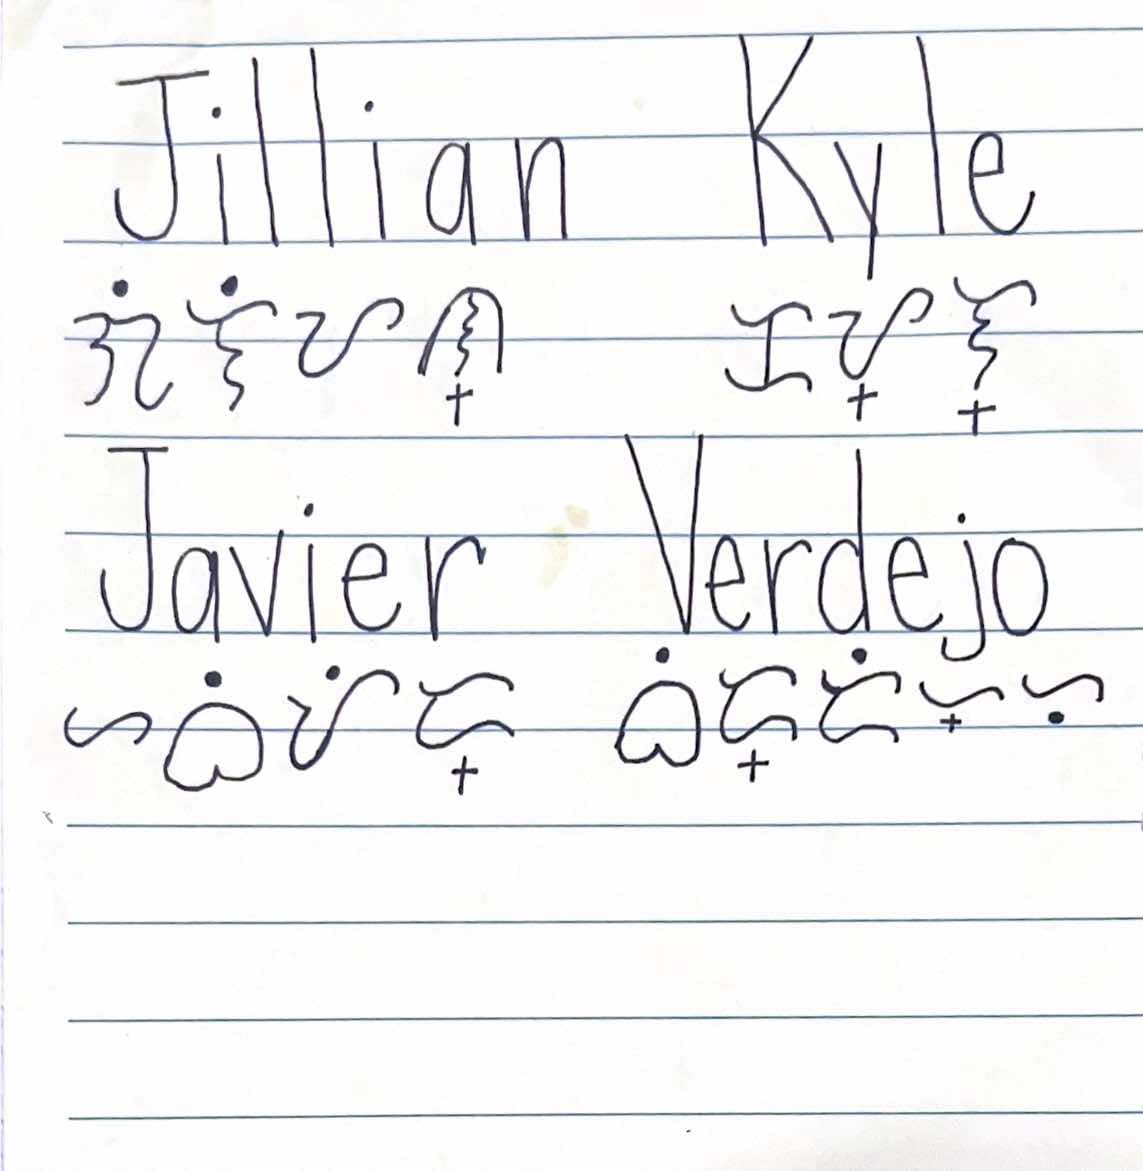 Jillian Kyle
ᜄᜒᜎᜒᜌᜈ᜔ ᜃᜌ᜔ᜎ᜔
Javier Verdejo
ᜑᜊᜒᜌᜒᜇ᜔ ᜊᜒᜇ᜔ᜇᜒᜑ᜔ᜑᜓ